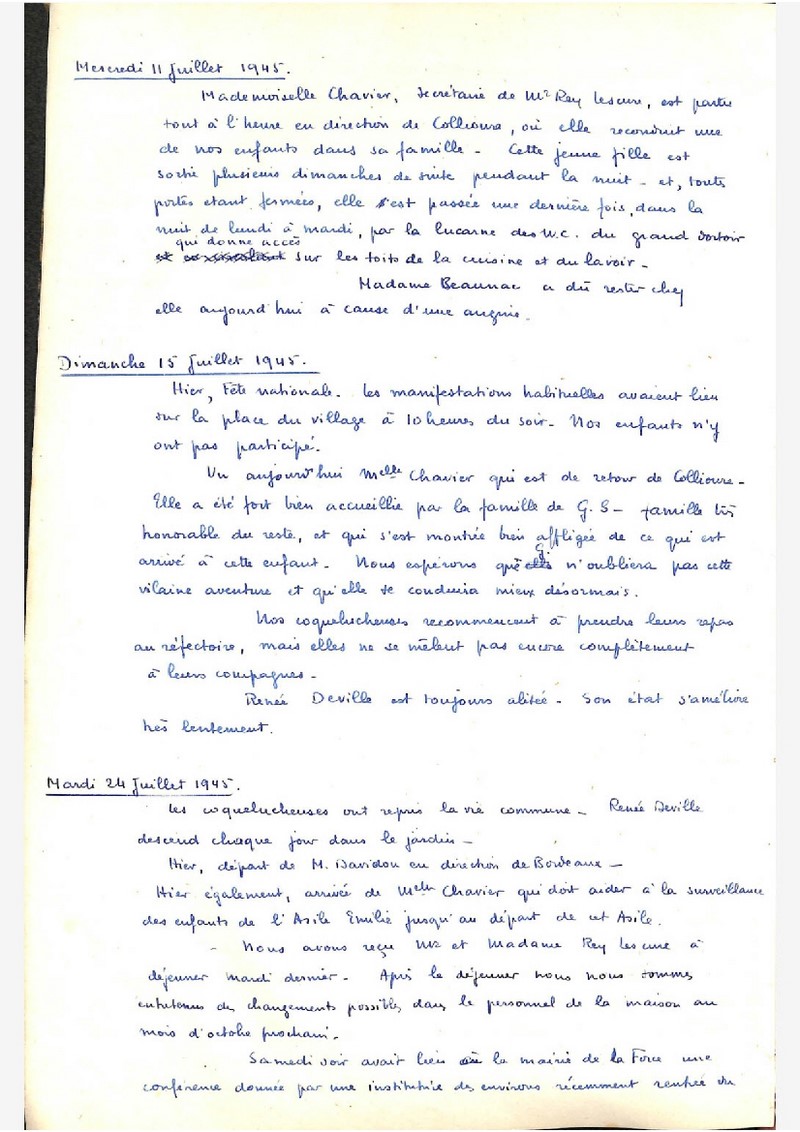 Mercredi 11 Juillet 1945.
Mademoiselle Chavier, secrétaire de Mr Rey Lescure, est partie
tout à l'heure en direction de Collioure, où elle reconduit une
de nos enfants dans sa famille - Cette jeune fille est
sortie plusieurs dimanches de suite pendant la nuit - et, toutes
portes étant fermées, elle s'est passée une dernière fois, dans la
nuit de lundi à mardi, par la lucarne des W.C. du grand dortoir
qui donne accès
sur les toits de la cuisine et du lavoir -
Madame Beaunac a dû rester chez
elle aujourd'hui à cause d'une angine.
Dimanche 15 Juillet 1945.
Hier, Fête nationale. Les manifestations habituelles avaient lieu
sur la place du village à 10 heures du soir. Nos enfants n'y
ont pas participé.
Vu aujourd'hui Melle Chavier qui est de retour de Collioure -
Elle a été fort bien accueillie par la famille de G. S - famille très
honorable du reste, et qui s'est montrée bien affligée de ce qui est
arrivé à cette enfant - Nous espérons que G. n'oubliera pas cette
vilaine aventure et qu'elle se conduira mieux désormais.
Nos coquelucheuses recommencent à prendre leurs repas
au réfectoire, mais elles ne se mêlent pas encore complètement
à leurs compagnes -
Renée Deville est toujours alitée - Son état s'améliore
très lentement.
Mardi 24 Juillet 1945.
Les coquelucheuses ont repris la vie commune - Renée Deville
descend chaque jour dans le jardin -
Hier, départ de M. Davidou en direction de Bordeaux -
Hier également, arrivée de Melle Chavier qui doit aider à la surveillance
des enfants de l'Asile Emilie jusqu'au départ de cet Asile.
- Nous avons reçu Mr et Madame Rey Lescure à
déjeuner mardi dernier - Après le déjeuner nous nous sommes
entretenus des changements possibles dans le personnel de la maison au
mois d'octobre prochain -
Samedi soir avait lieu à la mairie de la Force une
conférence donnée par une institutrice des environs récemment rentrée du